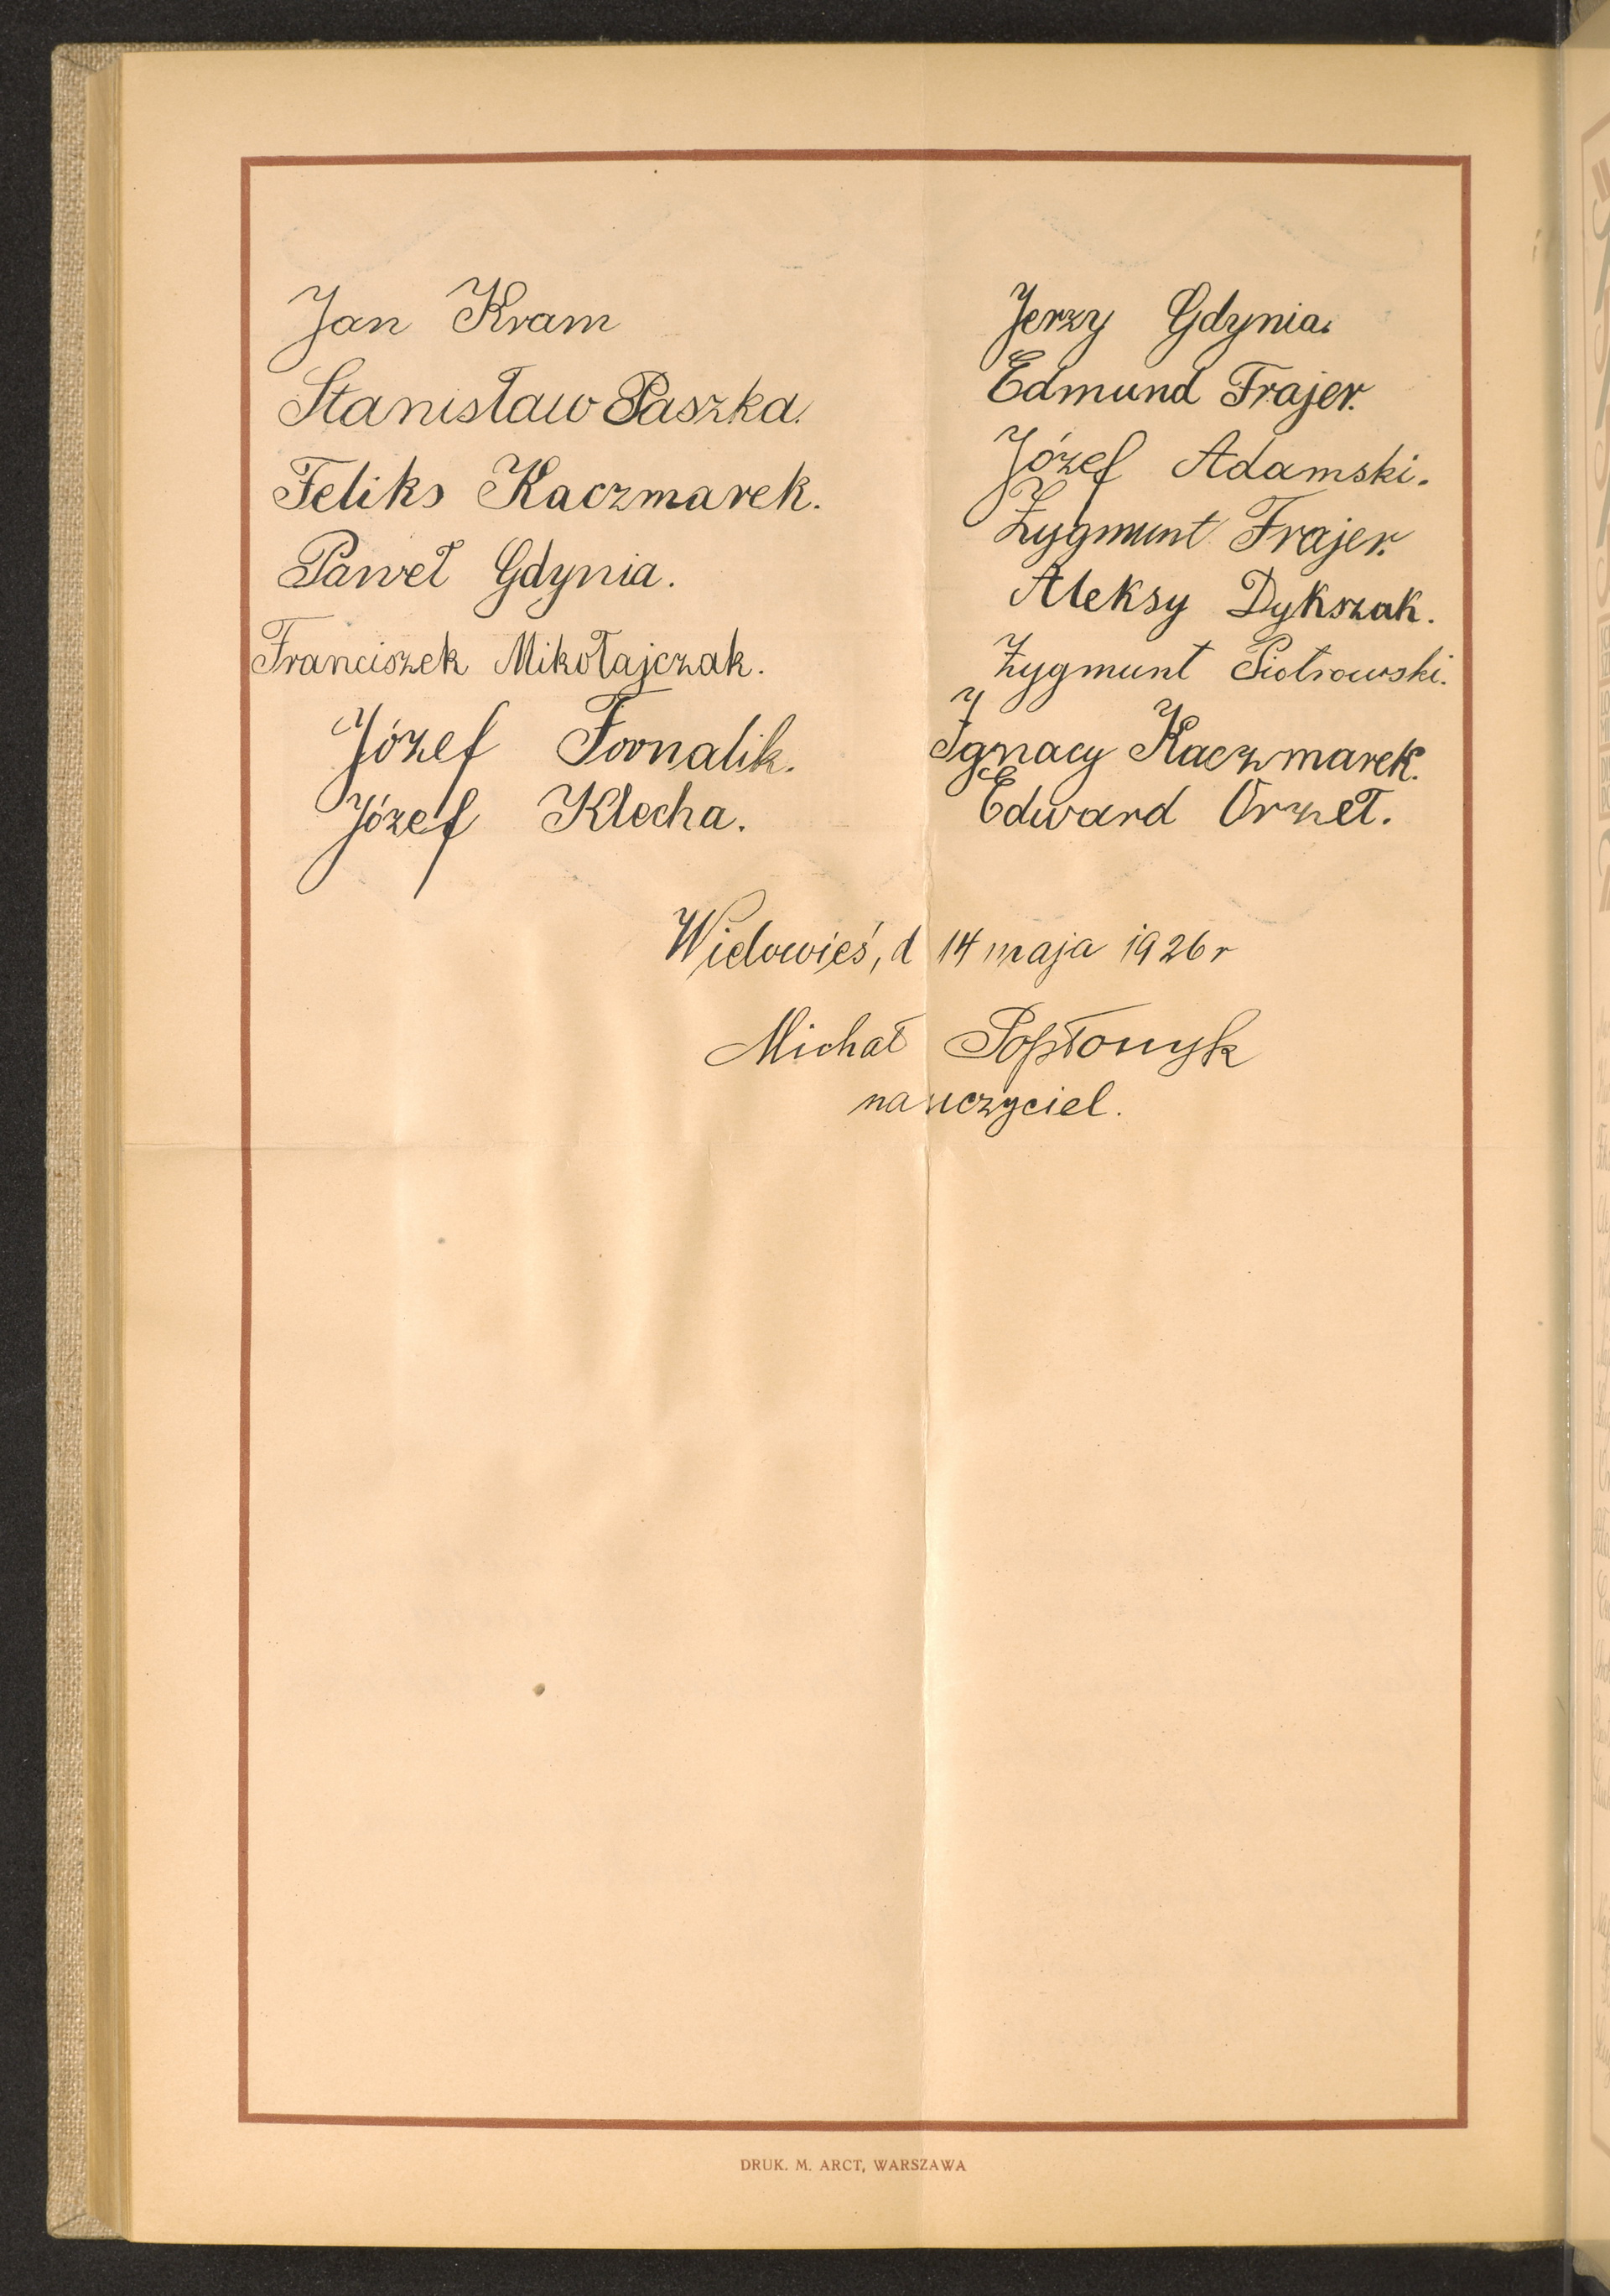 Jan Kram
Stanisław Paszka.
Feliks Kaczmarek.
Paweł Gdynia.
Franciszek Mikołajczak.
Józef Fornalik.
Józef Klecha.
Jerzy Gdynia.
Edmund Frajer.
Józef Adamski.
Zygmunt Frajer.
Aleksy Dykszak.
Zygmunt Piotrowski.
Ignacy Kaczmarek.
Edward Orzeł.
Wielowieś, d 14 maja 1926 r
Michał Popłomyk
nauczyciel.
DRUK. M. ARCT, WARSZAWA